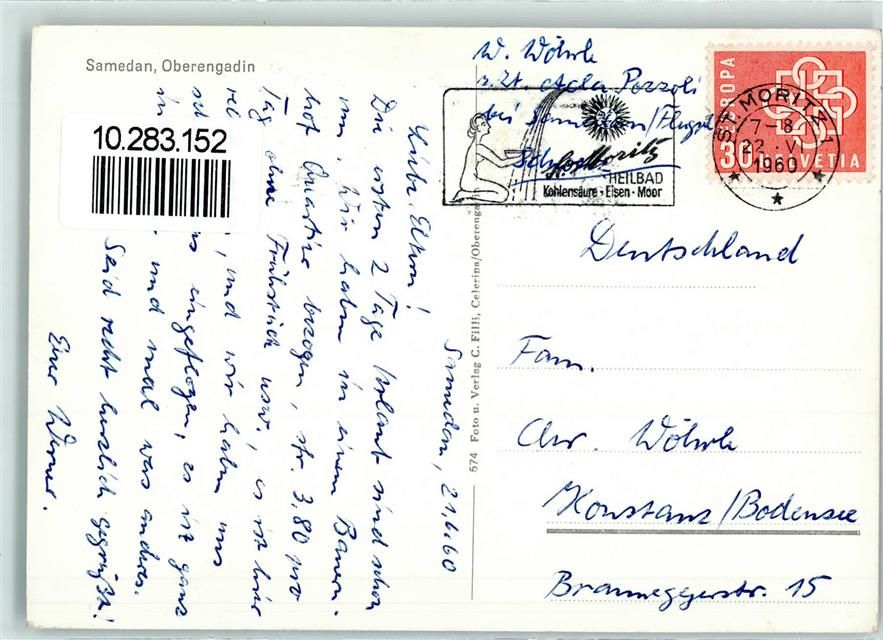 Samedan, Oberengadin
10.283.152
Samedan, 21.6.60
Liebe Eltern!
Die ersten 2 Tage Urlaub sind schon
um. Wir haben in einem Bauern-
hof Quartier bezogen, sfr. 3.80 pro
Tag ohne Frühstück usw., es ist hier
und wir haben uns
eingeflogen, es ist ganz
und mal was anderes.
Seid recht herzlich gegrüßt!
Euer Werner.
574 Foto u. Verlag C. Filli, Celerina/Oberenga
W. Wöhrle
z. Zt. Acla Pozzoli
bei Samedan/Flugpl.
Schweiz
St. Moritz
HEILBAD
Kohlensäure - Eisen - Moor
EUROPA
30
HELVETIA
ST. MORITZ 1
7-8
22.VI
1960
Deutschland
Fam.
Chr. Wöhrle
Konstanz/Bodensee
Brauneggerstr. 15